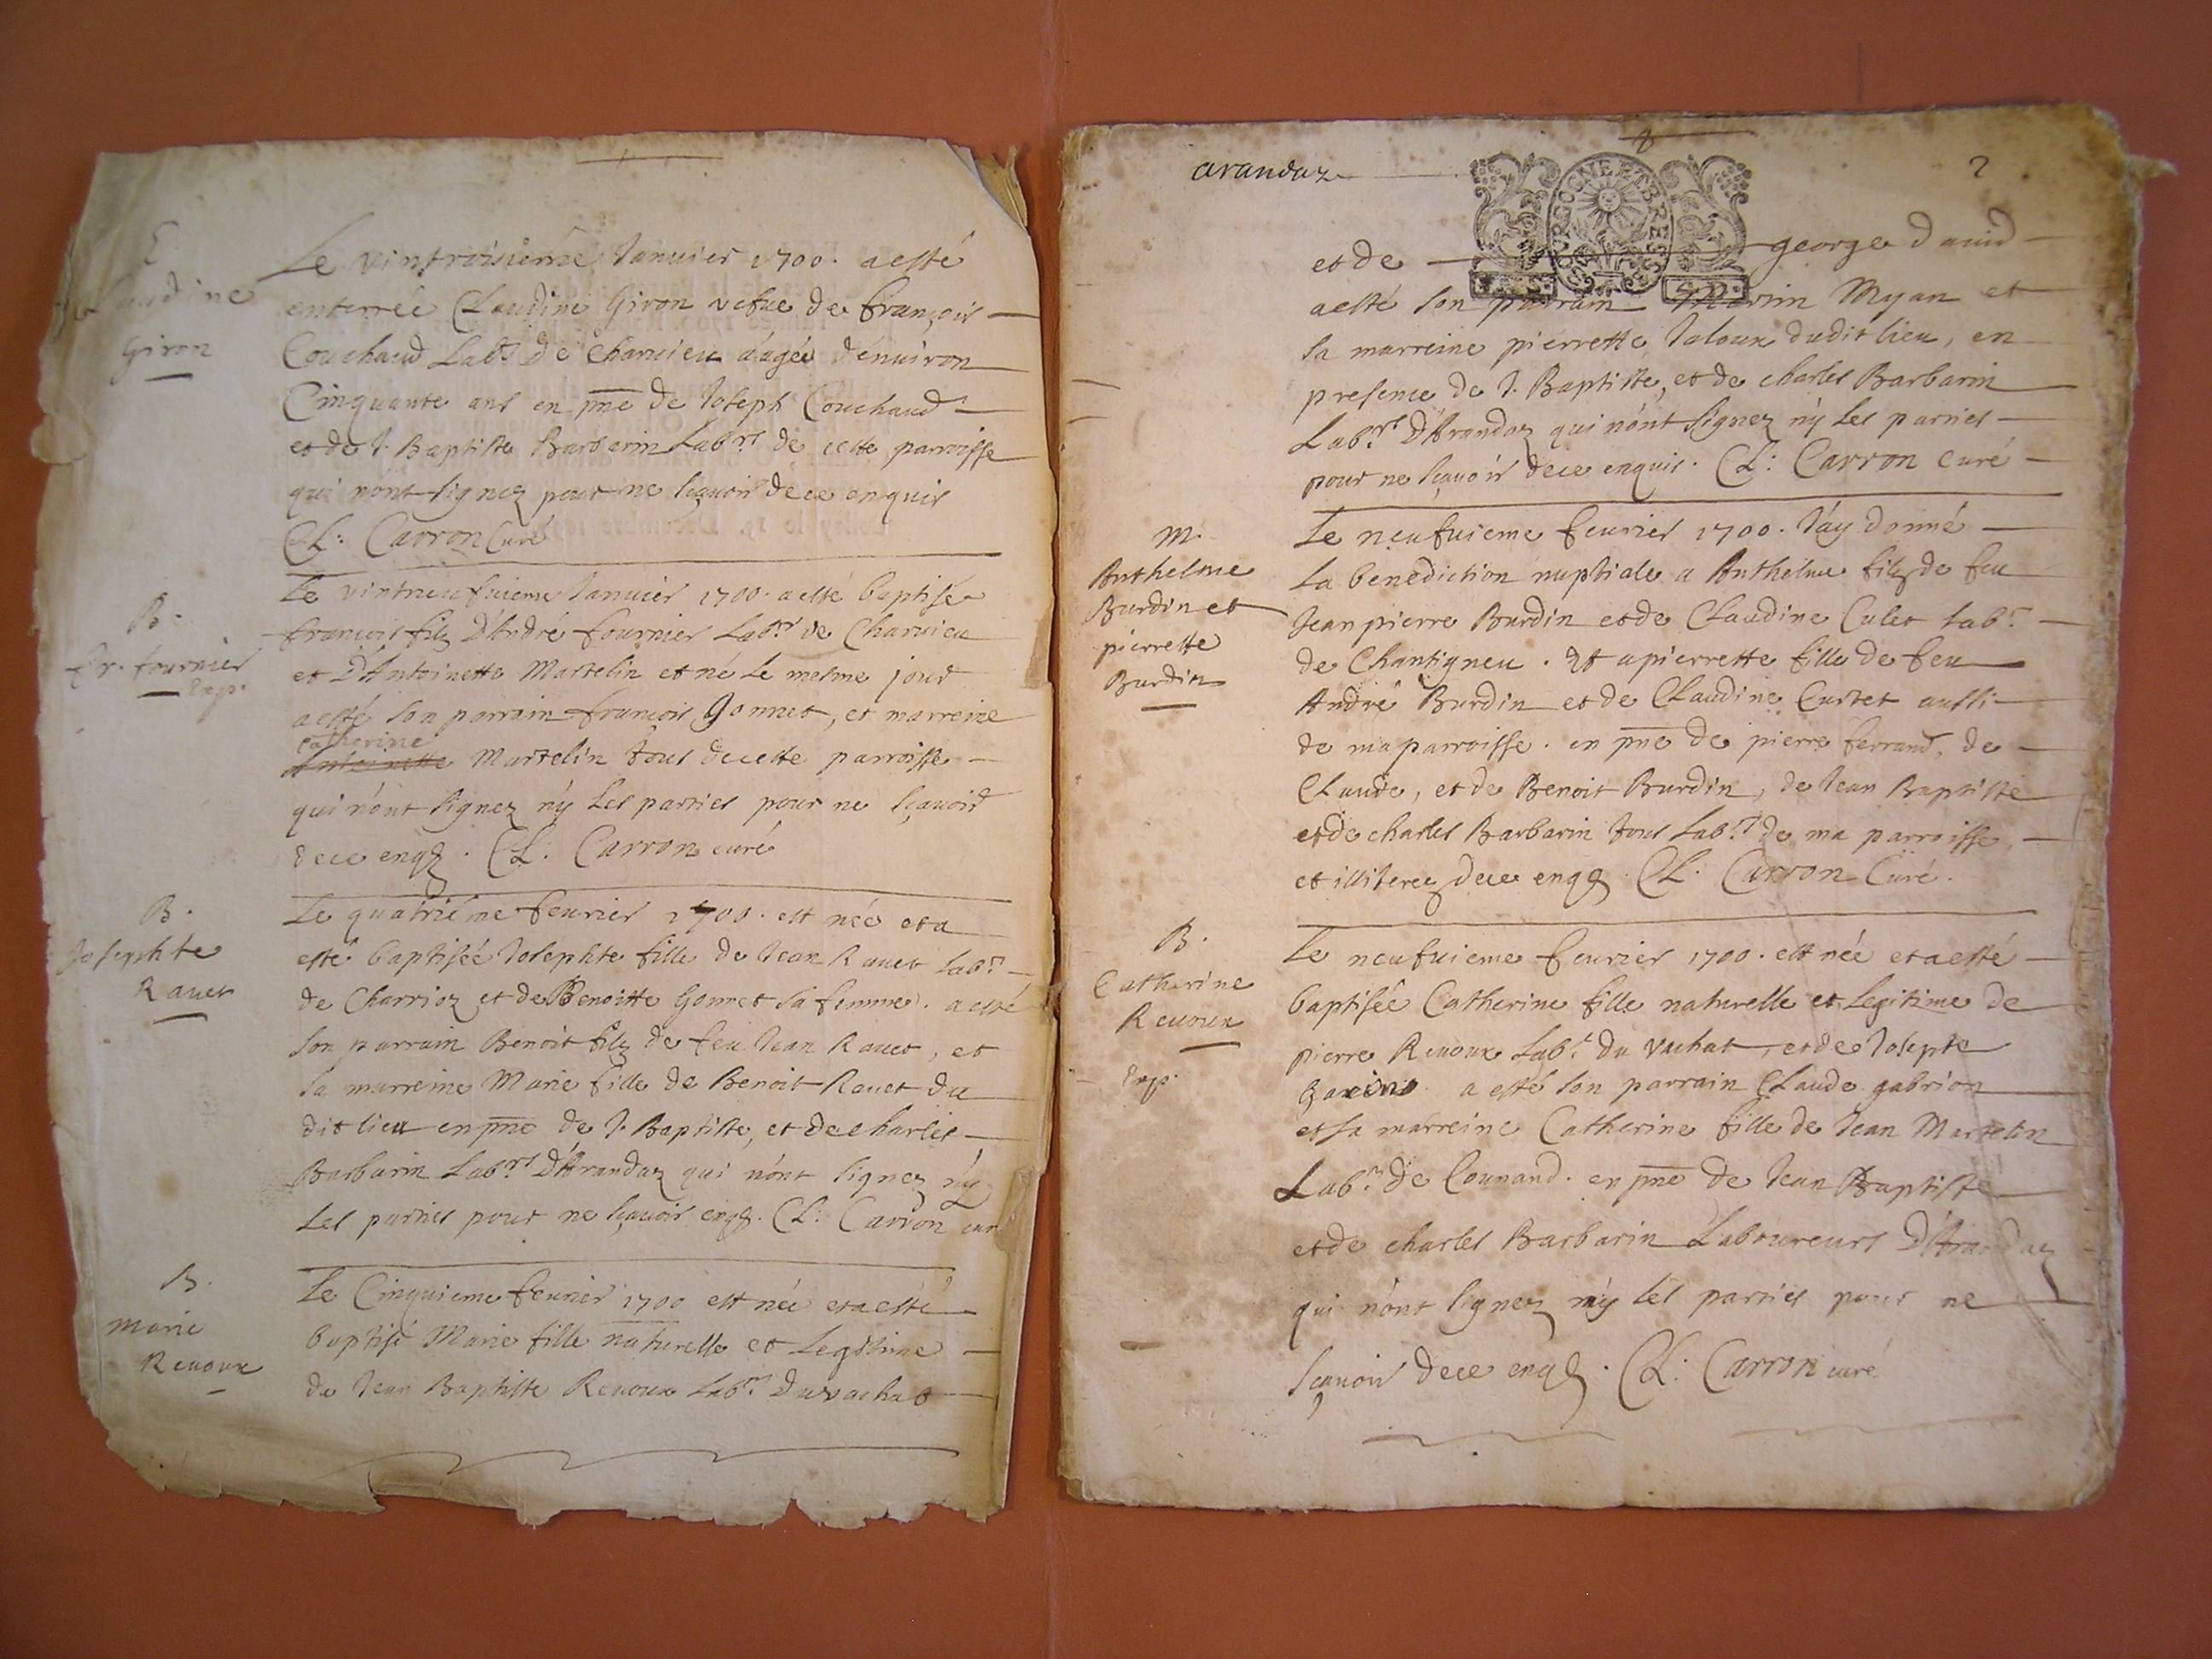 E.
Claudine
Giron
Le vintroisieme Januier 1700. a esté
enterrée Claudine Giron vefue de françois
Couchaud Labr. de Charuieu aágée d'enuiron
Cinquante ans en pne de Joseph Couchaud
et de J. Baptiste Barbarin Labrs. de cette parroisse
qui n'ont signez pour ne sçauoir de ce enquis
CL: Carron Curé
B.
fr. fournier
Exp.
Le vintneufuieme Januier 1700. a esté baptisé
françois filz D'André fournier Labr. de Charuieu
et D'Antoinette Martelin et né Le mesme jour
a esté son parrain françois Gonnet, et marreine
Catherine
Antoinette Martelin tous de cette parroisse
qui n'ont signez n'y Les parties pour ne sçauoir
de ce enqs. CL: Carron curé
B.
Josephte
Rauet
Le quatriéme feurier 1700. est née et a
esté baptisée Josephte fille de Jean Rauet Labr.
de Charrioz et de Benoitte Gonnet sa femme. a esté
son parrain Benoit filz de feu Jean Rauet, et
sa marreine Marie fille de Benoit Rauet du
dit lieu en pne de J. Baptiste, et de charles
Barbarin Labrs. D'Arandaz qui n'ont signez n'y
Les parties pour ne sçauoir enqs. CL: Carron cur
B.
marie
Reuoux
Le Cinquieme feurier 1700 est née et a esté
baptisé Marie fille naturelle et Legitime
de Jean Baptiste Reuoux Labr. du vachat
arandaz
2
BOURGOGNE ET BRESSE
et de george dauid
a esté son parrain Marin Myan et
sa marreine pierrette Jaloux dudit lieu, en
presence de J. Baptiste, et de charles Barbarin
Labrs. D'Arandaz qui n'ont signez n'y Les parties
pour ne sçauoir de ce enquis. CL: Carron Curé
M.
Anthelme
Burdin et
pierrette
Burdin
Le neufuieme feurier 1700. J'ay donné
La benediction nuptiale a Anthelme filz de feu
Jean pierre Burdin et de Claudine Culet Labr.
de Chantigneu. Et a pierrette fille de feu
André Burdin et de Claudine Curtet aussi
de ma parroisse. en pne de pierre ferrand, de
Claude, et de Benoit Burdin, de Jean Baptiste
et de charles Barbarin tous Labrs. de ma parroisse
et illiterez de ce enqs. CL. Carron Curé.
B.
Catherine
Reuoux
Exp.
Le neufuieme feurier 1700. est née et a esté
baptisée Catherine fille naturelle et Legitime de
pierre Reuoux Labr. du vachat, et de Josepte
a esté son parrain Claude gabrion
et sa marreine Catherine fille de Jean Martelin
Labr. de Counand. en pne de Jean Baptiste
et de charles Barbarin Laboureurs D'Arandaz
qui n'ont signez n'y Les parties pour ne
sçauoir de ce enqs. CL: Carron curé